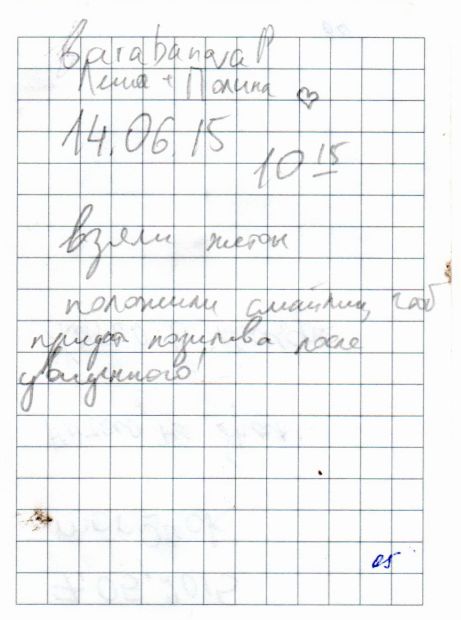 Barabanova P
Леша + Полина
14.06.15
10 15
взяли жетон
положили смайлик, чтоб
придать позитива после
увиденного!
05